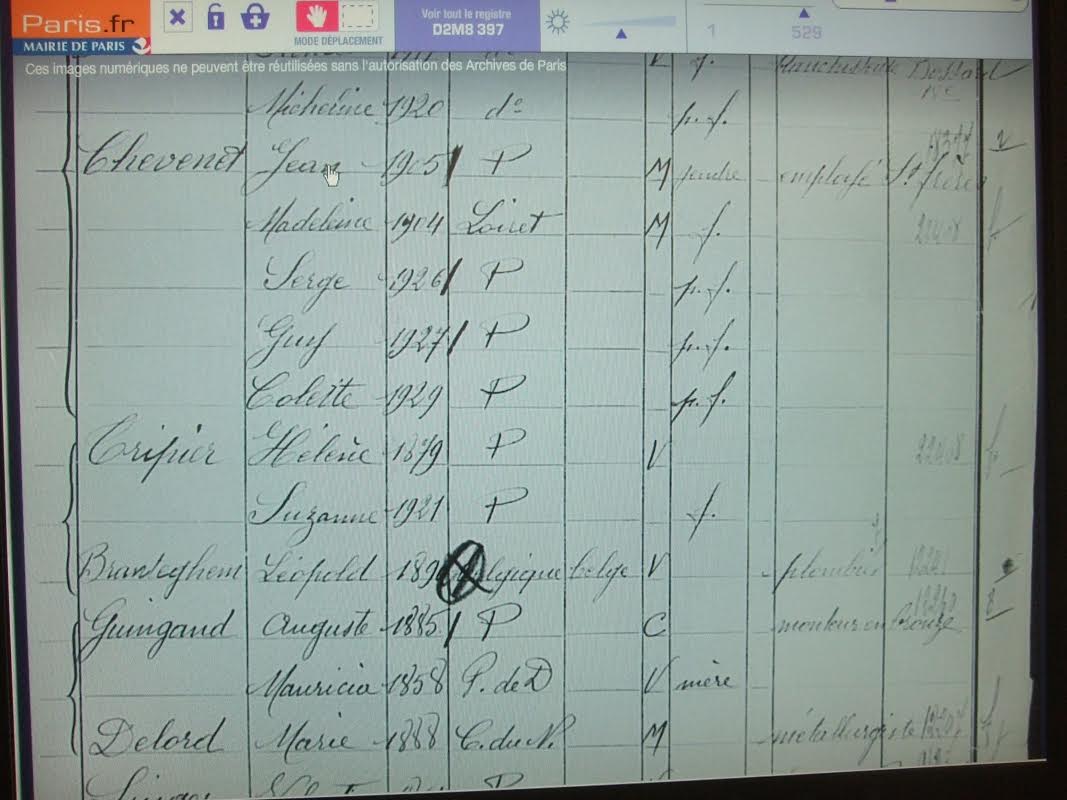 Paris.fr
MAIRIE DE PARIS
MODE DÉPLACEMENT
Voir tout le registre
D2M8 397
1
529
Ces images numériques ne peuvent être réutilisées sans l'autorisation des Archives de Paris
Micheline 1920 d° p.f.
Chevenet Jean 1905 P M gendre employé St frères
Madeleine 1904 Loiret M f.
Serge 1926 P p.f.
Guy 1927 P p.f.
Colette 1929 P p.f.
Tripier Hélène 1879 P V
Suzanne 1921 P f.
Branteghem Léopold Belgique belge V plombier
Guingand Auguste 1885 P C monteur en bronze
Mauricia 1858 P. de D V mère
Delord Marie 1888 C. du N. M métallurgiste